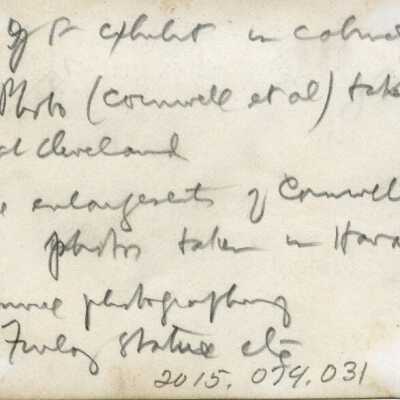 of F exhibit in
Photo (Cornwell et al) take
at Cleveland
enlargements of Cornwell
photos taken in Hava
photographing
Finlay statue etc
2015.074.031